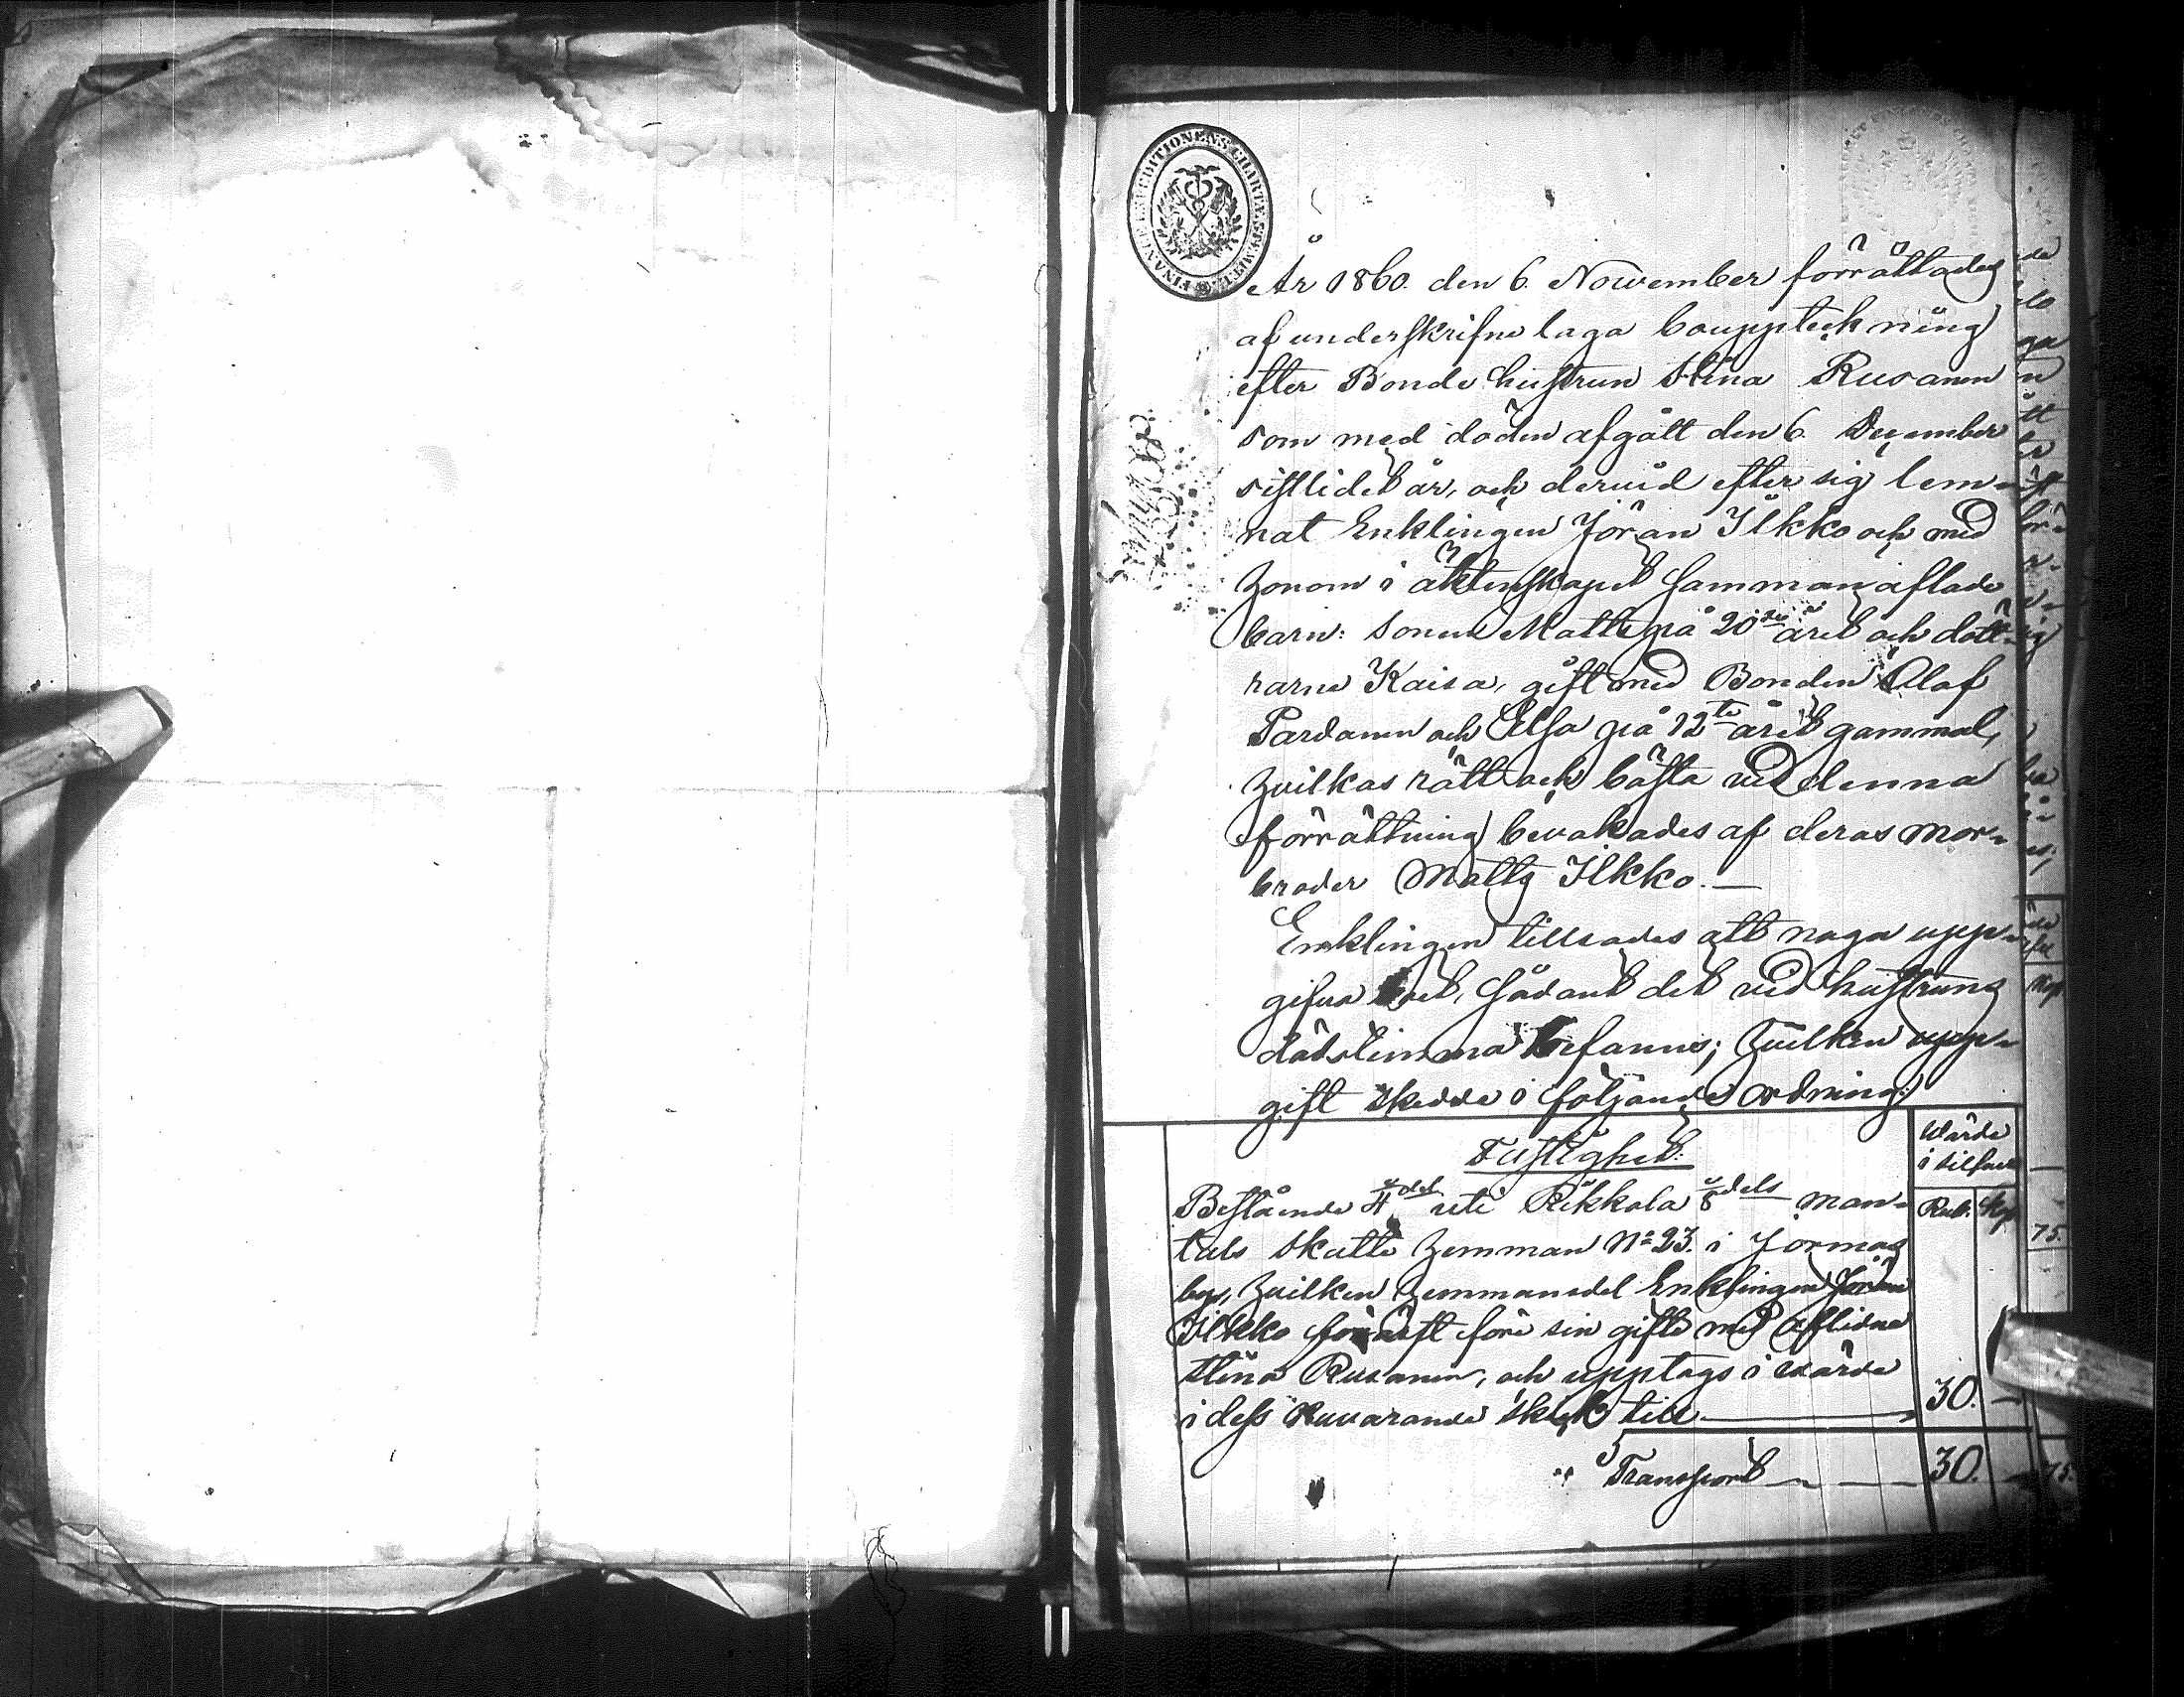 FINANCE EXPEDITIONENS CHARTÆ STEMPEL
År 1860. den 6. November förrättades
af underskrifne laga bouppteckning
efter Bonde hustrun Stina Rusanen
som med döden afgått den 6. December
sistlidet år, och dervid efter sig lem-
nat Enklingen Jöran Ilkko och med
honom i äktenskapet sammanaflade
barn: Sonen Matts på 20de året och dött-
rarne Kaisa, gift med Bonden Olaf
Pardanen och Elsa på 12te året gammal,
hvilkas rätt och bästa vid denna
förrättning bevakades af deras mor-
broder Matts Ilkko.—
Enklingen tillsades att noga upp-
gifva boet, sådant det vid hustruns
dödstimma befanns; hvilken upp-
gift skedde i följande ordning:
Wärde
i silfver
Rub. Kop
Fastighet:
Bestående 1/4del uti Rikkola 1/8dels man-
tals skatte hemman No 23. i Jormas
by, hvilken hemmansdel Enklingen Jöran
Ilkko förvärft före sin gifte med aflidna
Stina Rusanen, och upptags i värde
i dess nuvarande skick till — 30. —
Transport — 30. —
75.
75.